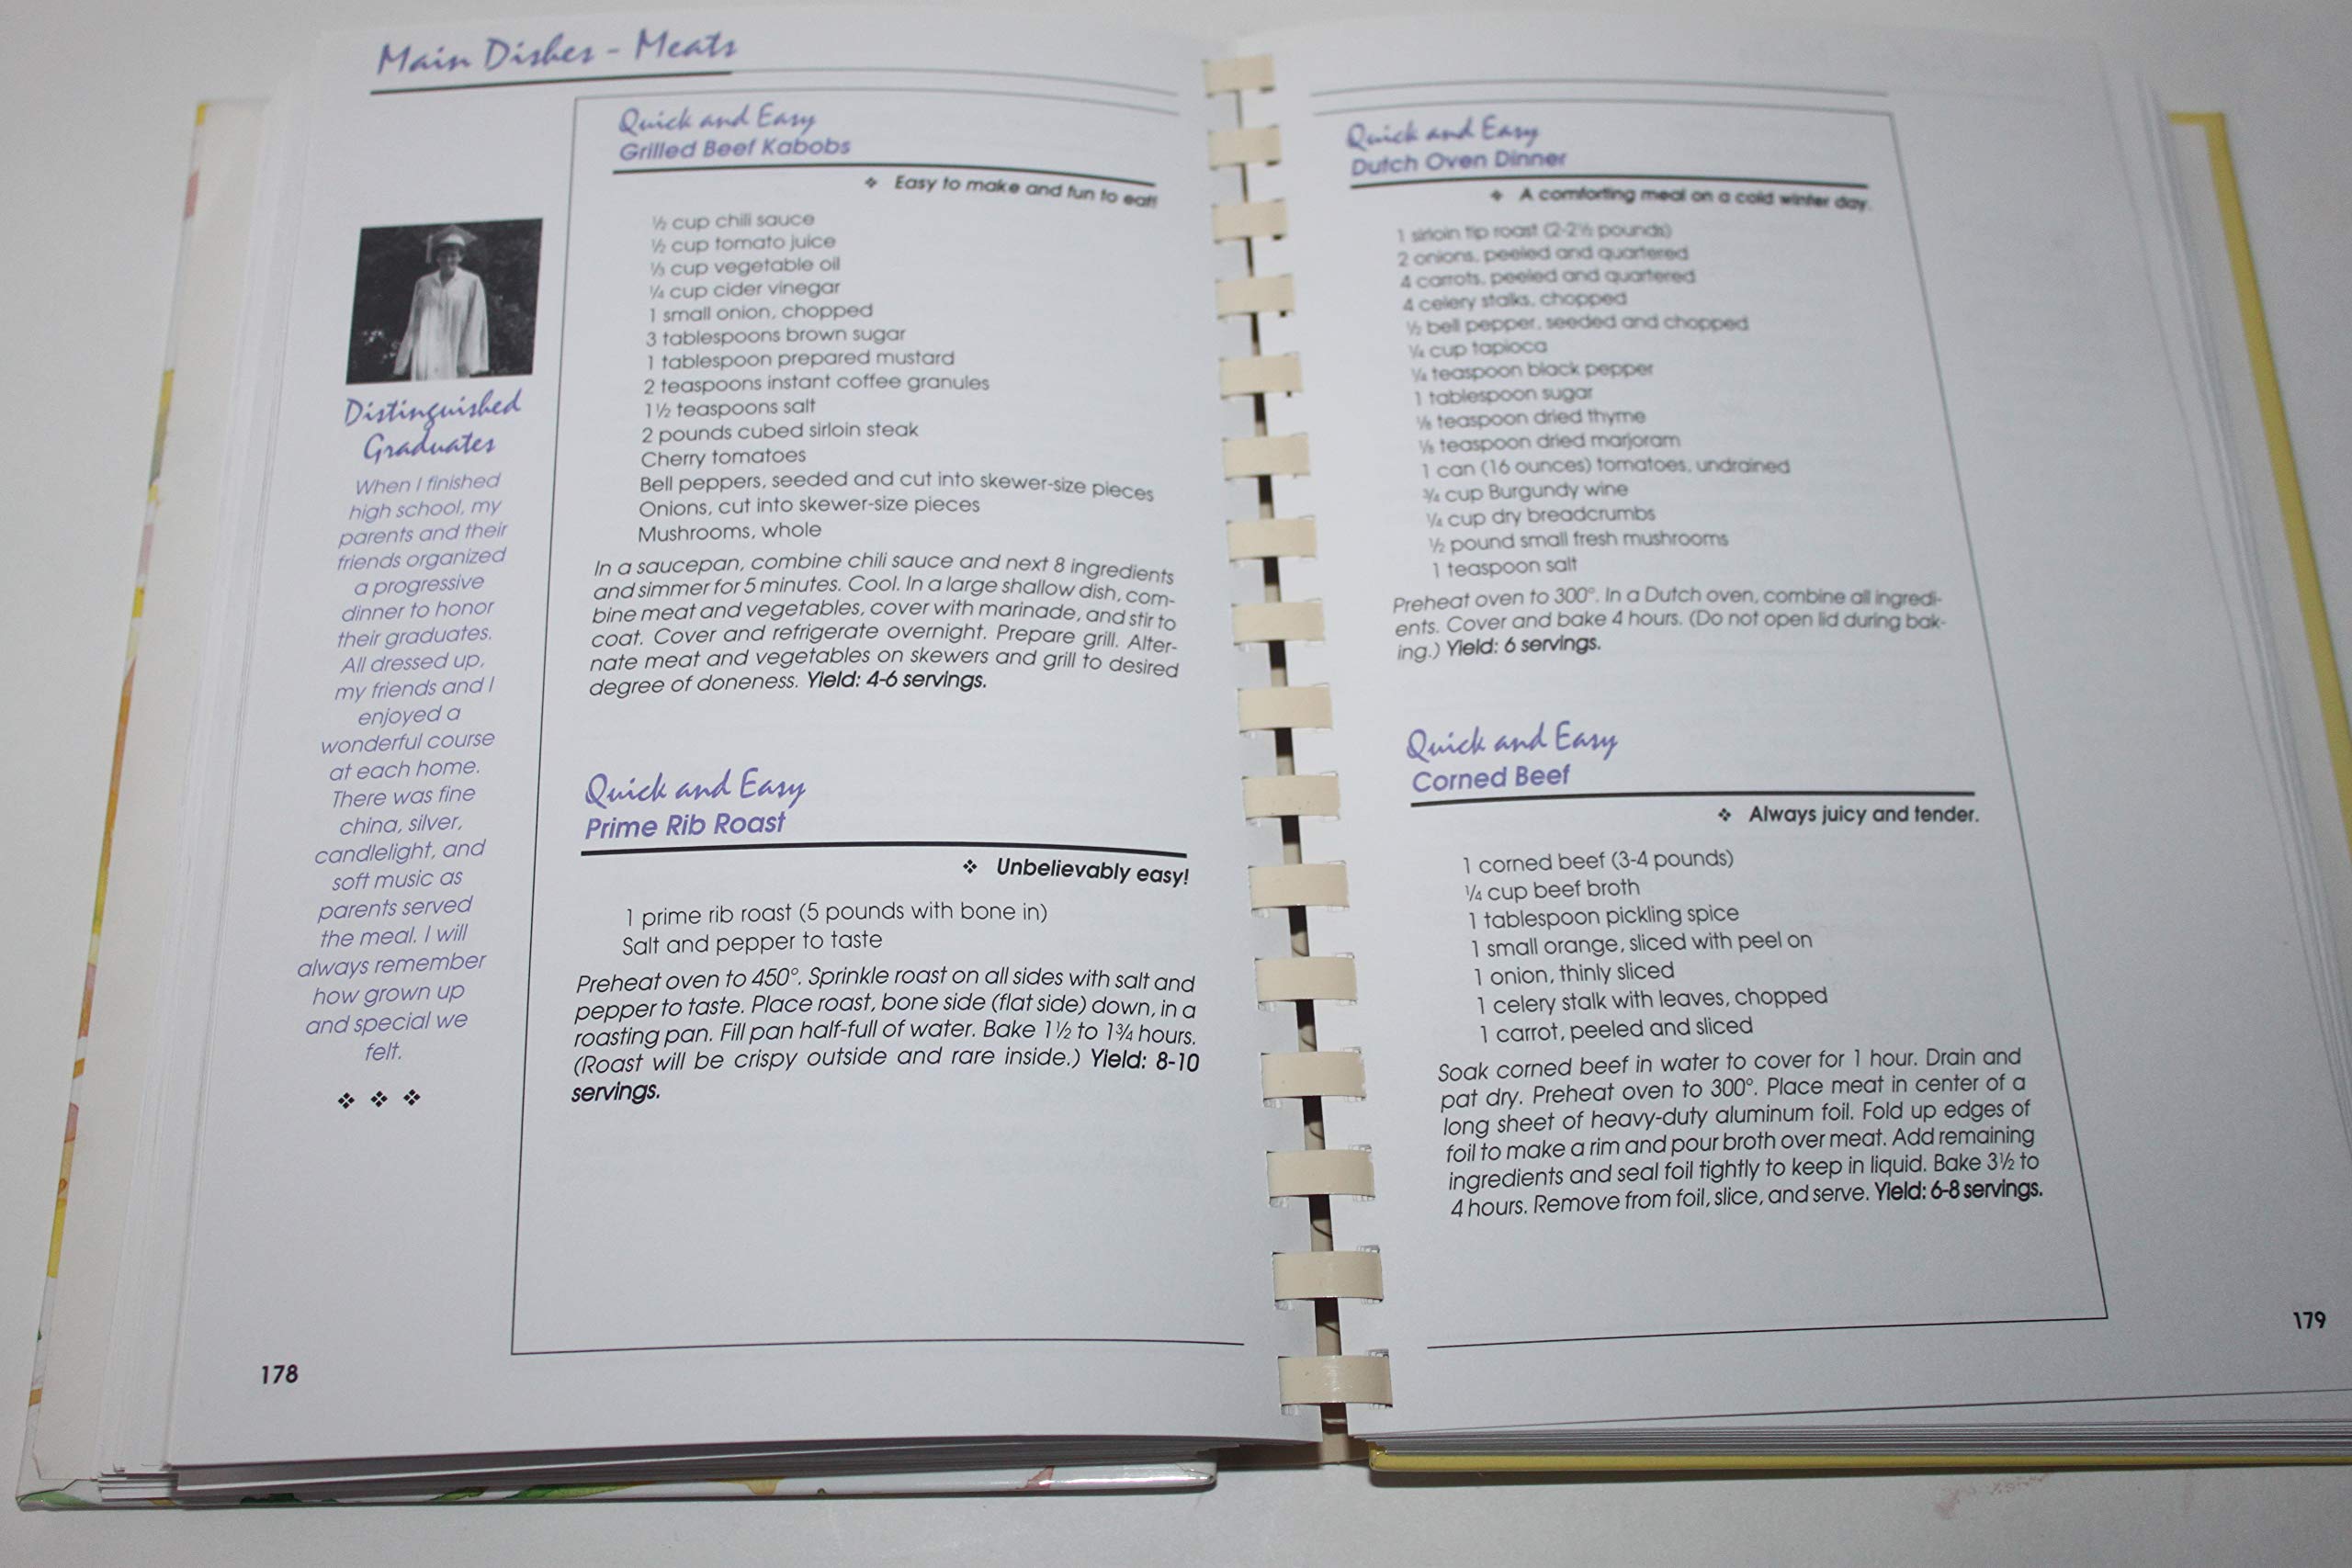 Main Dishes - Meats
Distinguished
Graduates
When I finished
high school, my
parents and their
friends organized
a progressive
dinner to honor
their graduates.
All dressed up,
my friends and I
enjoyed a
wonderful course
at each home.
There was fine
china, silver,
candlelight, and
soft music as
parents served
the meal. I will
always remember
how grown up
and special we
felt.
❖ ❖ ❖
Quick and Easy
Grilled Beef Kabobs
❖ Easy to make and fun to eat!
½ cup chili sauce
½ cup tomato juice
⅓ cup vegetable oil
¼ cup cider vinegar
1 small onion, chopped
3 tablespoons brown sugar
1 tablespoon prepared mustard
2 teaspoons instant coffee granules
1½ teaspoons salt
2 pounds cubed sirloin steak
Cherry tomatoes
Bell peppers, seeded and cut into skewer-size pieces
Onions, cut into skewer-size pieces
Mushrooms, whole
In a saucepan, combine chili sauce and next 8 ingredients
and simmer for 5 minutes. Cool. In a large shallow dish, com-
bine meat and vegetables, cover with marinade, and stir to
coat. Cover and refrigerate overnight. Prepare grill. Alter-
nate meat and vegetables on skewers and grill to desired
degree of doneness. Yield: 4-6 servings.
Quick and Easy
Prime Rib Roast
❖ Unbelievably easy!
1 prime rib roast (5 pounds with bone in)
Salt and pepper to taste
Preheat oven to 450°. Sprinkle roast on all sides with salt and
pepper to taste. Place roast, bone side (flat side) down, in a
roasting pan. Fill pan half-full of water. Bake 1½ to 1¾ hours.
(Roast will be crispy outside and rare inside.) Yield: 8-10
servings.
178
Quick and Easy
Dutch Oven Dinner
❖ A comforting meal on a cold winter day.
1 sirloin tip roast (2-2½ pounds)
2 onions, peeled and quartered
4 carrots, peeled and quartered
4 celery stalks, chopped
½ bell pepper, seeded and chopped
¼ cup tapioca
¼ teaspoon black pepper
1 tablespoon sugar
⅛ teaspoon dried thyme
⅛ teaspoon dried marjoram
1 can (16 ounces) tomatoes, undrained
¾ cup Burgundy wine
¼ cup dry breadcrumbs
½ pound small fresh mushrooms
1 teaspoon salt
Preheat oven to 300°. In a Dutch oven, combine all ingredi-
ents. Cover and bake 4 hours. (Do not open lid during bak-
ing.) Yield: 6 servings.
Quick and Easy
Corned Beef
❖ Always juicy and tender.
1 corned beef (3-4 pounds)
¼ cup beef broth
1 tablespoon pickling spice
1 small orange, sliced with peel on
1 onion, thinly sliced
1 celery stalk with leaves, chopped
1 carrot, peeled and sliced
Soak corned beef in water to cover for 1 hour. Drain and
pat dry. Preheat oven to 300°. Place meat in center of a
long sheet of heavy-duty aluminum foil. Fold up edges of
foil to make a rim and pour broth over meat. Add remaining
ingredients and seal foil tightly to keep in liquid. Bake 3½ to
4 hours. Remove from foil, slice, and serve. Yield: 6-8 servings.
179